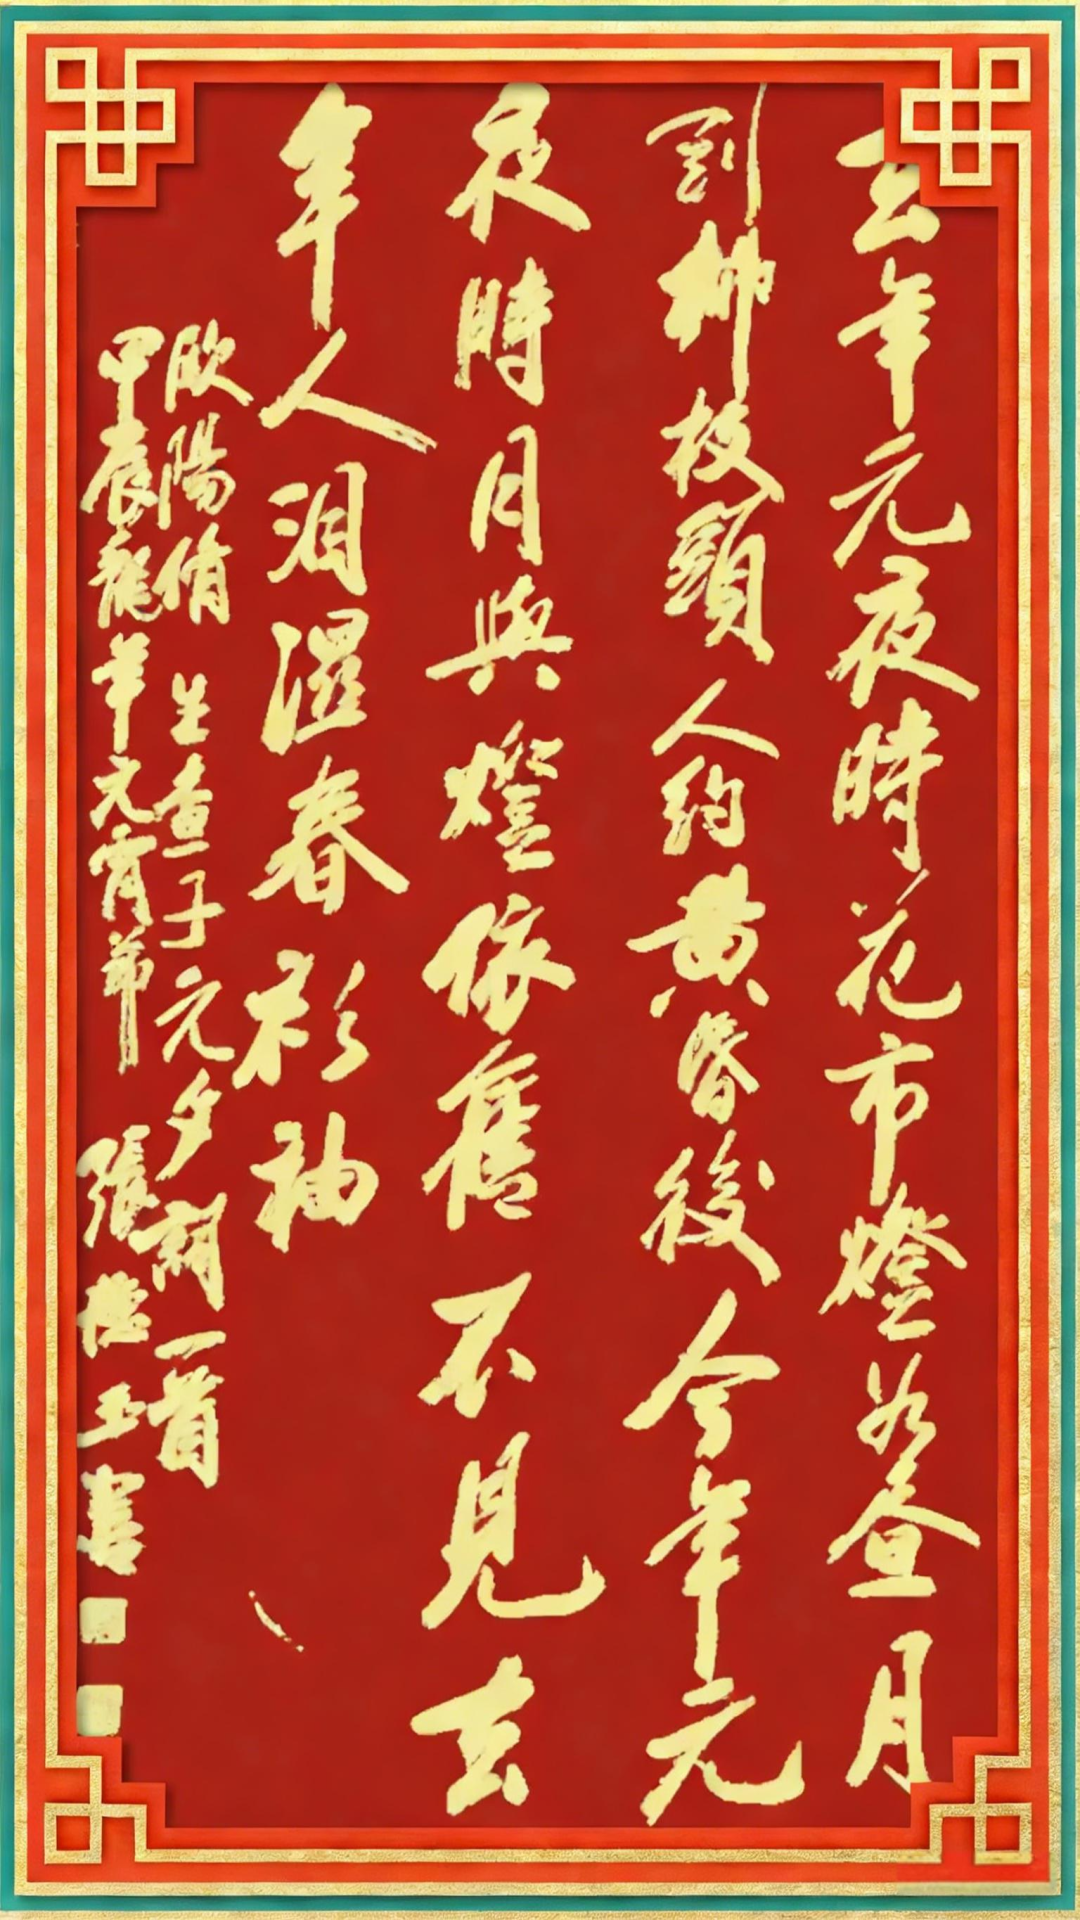 去年元夜時花市燈如晝月
到柳枝頭人約黃昏後今年元
夜時月與燈依舊不見去
年人泪濕春衫袖
欧陽脩生查子元夕詞一首
甲辰龍年元宵節 張玉書